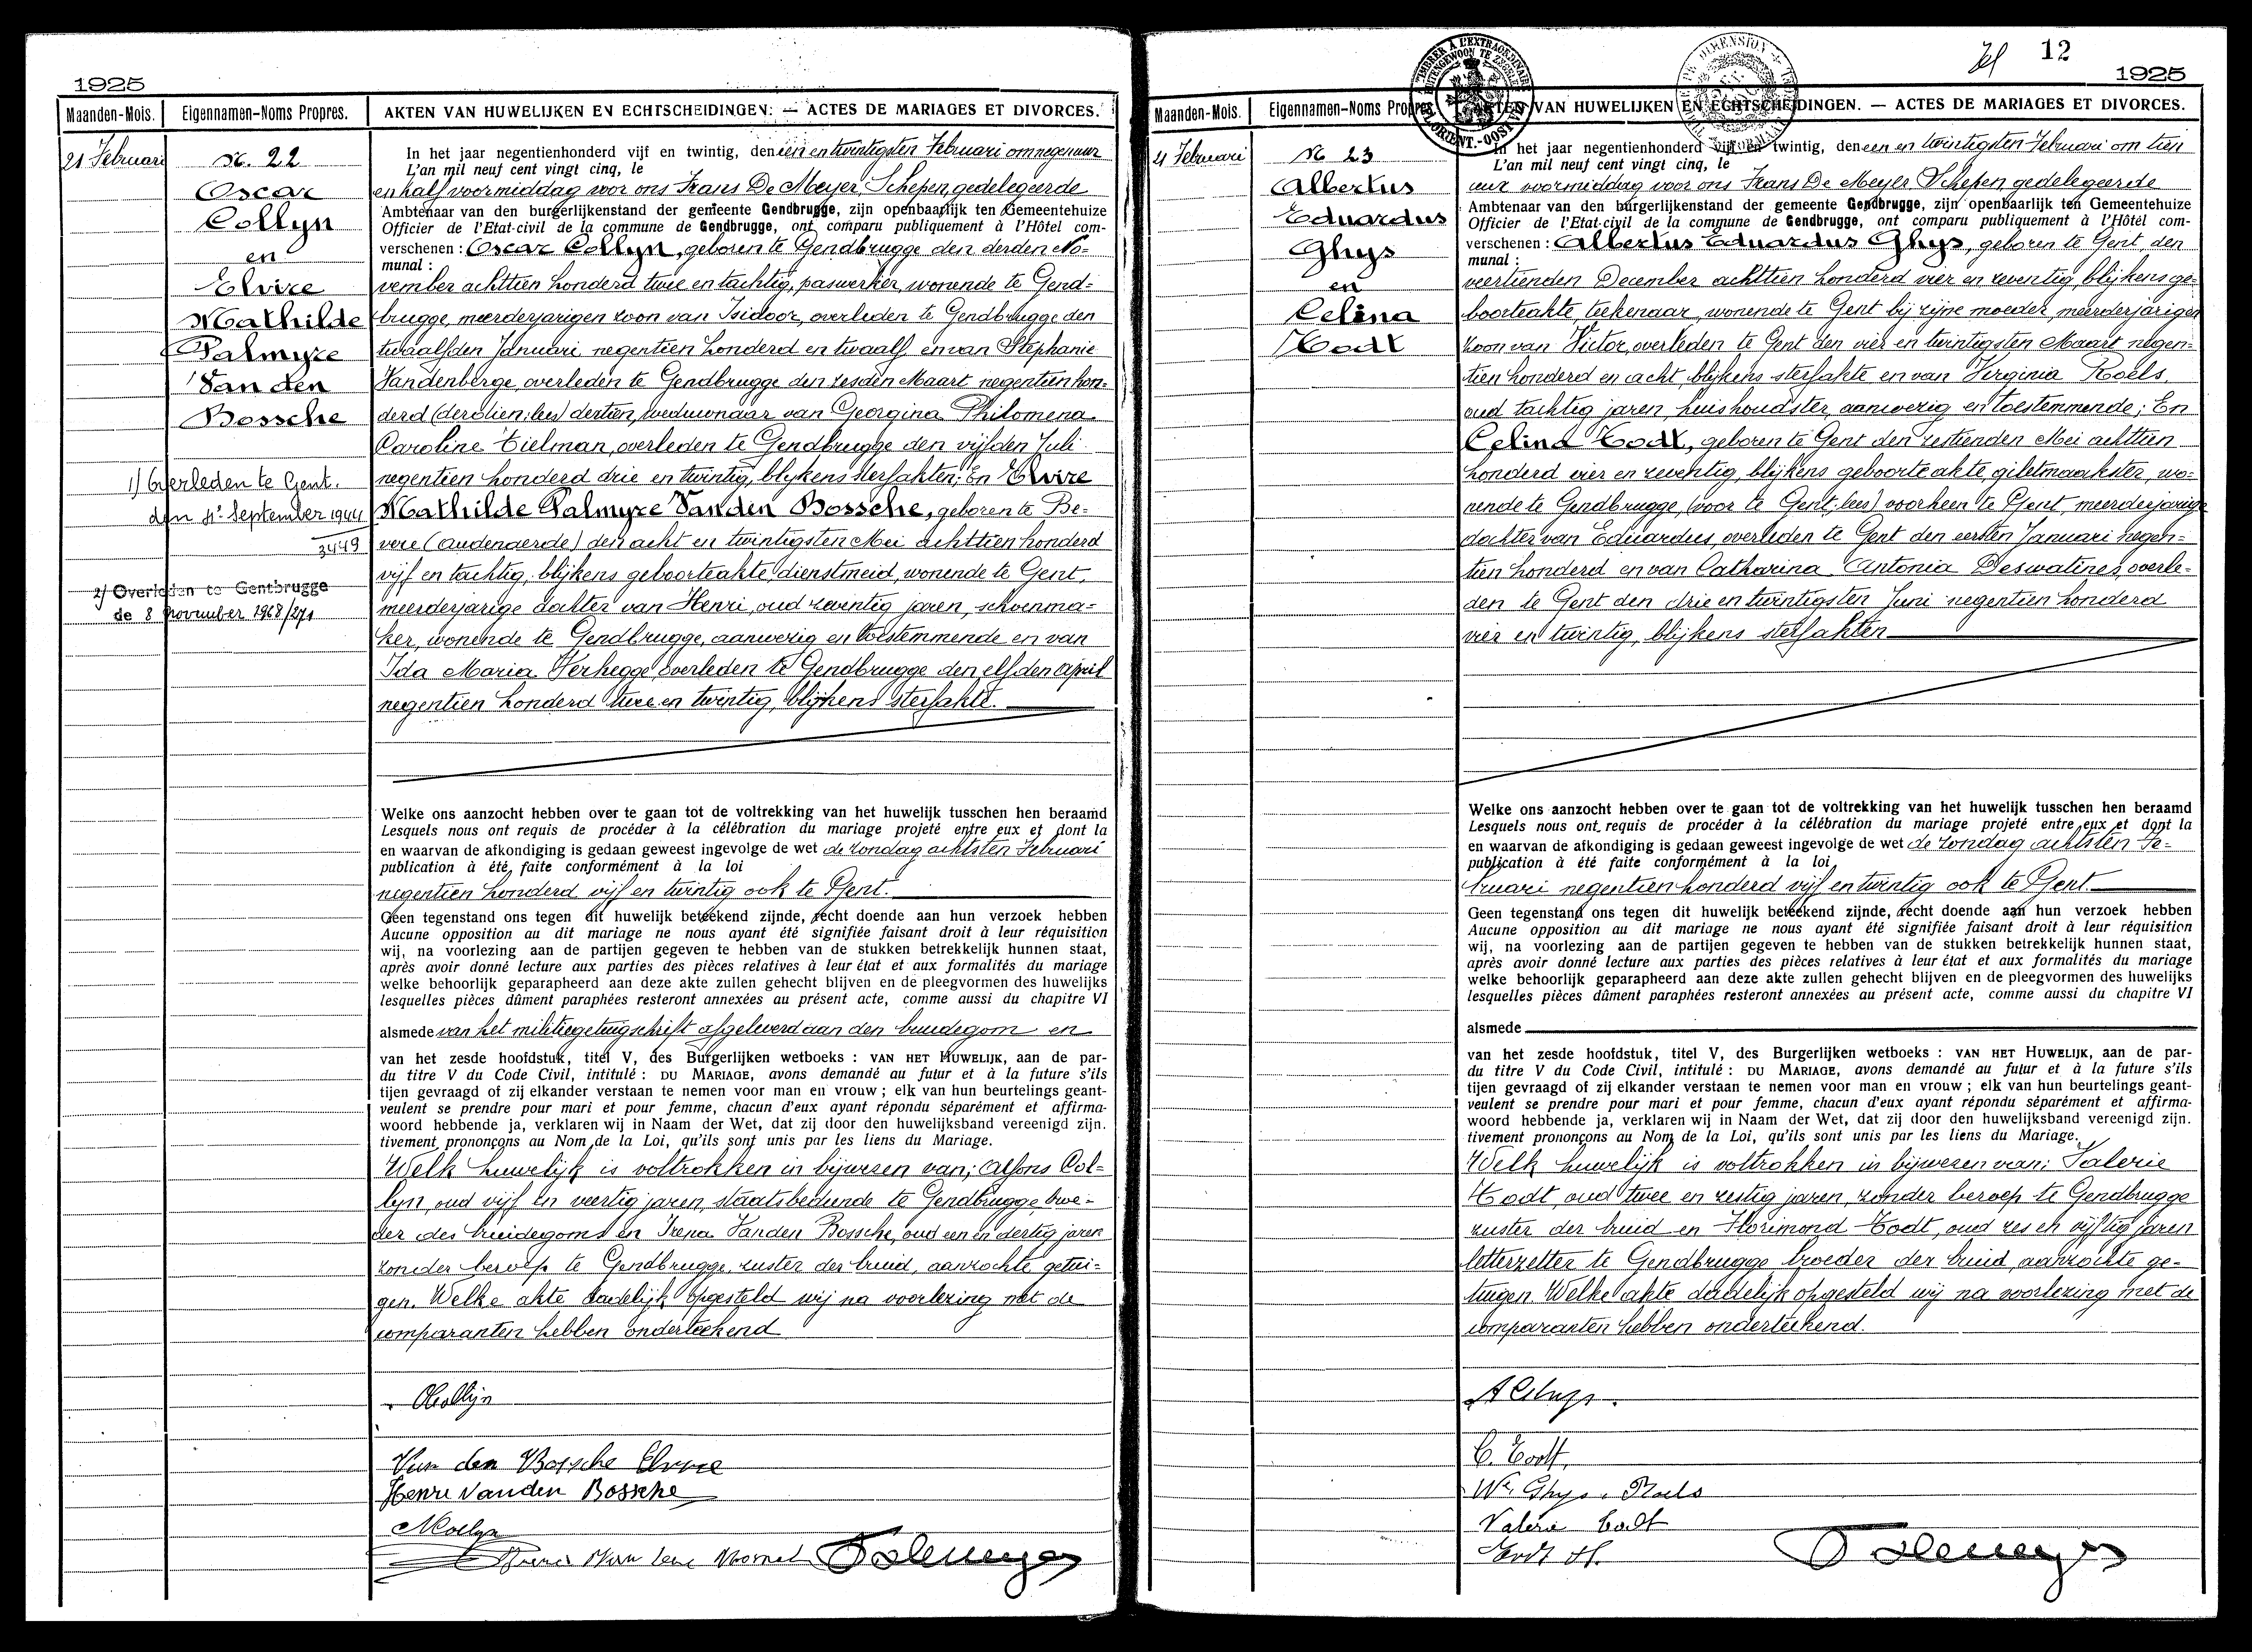 1925
Maanden-Mois. Eigennamen-Noms Propres. AKTEN VAN HUWELIJKEN EN ECHTSCHEIDINGEN. — ACTES DE MARIAGES ET DIVORCES.
21 Februari
N. 22
Oscar
Collyn
en
Elvire
Mathilde
Palmyre
Van den
Bossche
1) Overleden te Gent.
den 4e September 1944
3449
2) Overleden te Gentbrugge
de 8 november 1968/271
In het jaar negentienhonderd vijf en twintig, den een en twintigsten Februari om negen uur
L'an mil neuf cent vingt cinq, le
en half voormiddag voor ons Frans De Meyer, Schepen, gedelegeerde
Ambtenaar van den burgerlijkenstand der gemeente Gendbrugge, zijn openbaarlijk ten Gemeentehuize
Officier de l'Etat-civil de la commune de Gendbrugge, ont comparu publiquement à l'Hôtel com-
verschenen : Oscar Collyn, geboren te Gendbrugge den derden No-
munal :
vember achttien honderd twee en tachtig, paswerker, wonende te Gend-
brugge, meerderjarigen zoon van Isidoor, overleden te Gendbrugge den
twaalfden Januari negentien honderd en twaalf en van Stephanie
Vandenberge, overleden te Gendbrugge den zesden Maart negentien hon-
derd (derstien; lees) dertien, weduwnaar van Georgina Philomena
Caroline Tielman, overleden te Gendbrugge den vijfden Juli
negentien honderd drie en twintig, blijkens sterfakten; En Elvire
Mathilde Palmyre Van den Bossche, geboren te Be-
vere (Audenaerde) den acht en twintigsten Mei achttien honderd
vijf en tachtig, blijkens geboorteakte, dienstmeid, wonende te Gent,
meerderjarige dochter van Henri, oud zeventig jaren, schoenma-
ker, wonende te Gendbrugge, aanwezig en toestemmende en van
Ida Maria Verhegge, overleden te Gendbrugge den elfden April
negentien honderd twee en twintig, blijkens sterfakte.
Welke ons aanzocht hebben over te gaan tot de voltrekking van het huwelijk tusschen hen beraamd
Lesquels nous ont requis de procéder à la célébration du mariage projeté entre eux et dont la
en waarvan de afkondiging is gedaan geweest ingevolge de wet de zondag achtsten Februari
publication à été faite conformément à la loi
negentien honderd vijf en twintig ook te Gent.
Geen tegenstand ons tegen dit huwelijk beteekend zijnde, recht doende aan hun verzoek hebben
Aucune opposition au dit mariage ne nous ayant été signifiée faisant droit à leur réquisition
wij, na voorlezing aan de partijen gegeven te hebben van de stukken betrekkelijk hunnen staat,
après avoir donné lecture aux parties des pièces relatives à leur état et aux formalités du mariage
welke behoorlijk geparapheerd aan deze akte zullen gehecht blijven en de pleegvormen des huwelijks
lesquelles pièces dûment paraphées resteront annexées au présent acte, comme aussi du chapitre VI
alsmede van het militiegetuigschrift afgeleverd aan den bruidegom en
van het zesde hoofdstuk, titel V, des Burgerlijken wetboeks : VAN HET HUWELIJK, aan de par-
du titre V du Code Civil, intitulé : DU MARIAGE, avons demandé au futur et à la future s'ils
tijen gevraagd of zij elkander verstaan te nemen voor man en vrouw ; elk van hun beurtelings geant-
veulent se prendre pour mari et pour femme, chacun d'eux ayant répondu séparément et affirma-
woord hebbende ja, verklaren wij in Naam der Wet, dat zij door den huwelijksband vereenigd zijn.
tivement prononçons au Nom de la Loi, qu'ils sont unis par les liens du Mariage.
Welk huwelijk is voltrokken in bijwezen van; Alfons Col-
lyn, oud vijf en veertig jaren, staatsbediende te Gendbrugge, broe-
der des bruidegoms en Irena Vanden Bossche, oud een en dertig jaren
zonder beroep te Gendbrugge, zuster der bruid, aanzochte getui-
gen. Welke akte dadelijk opgesteld wij na voorlezing met de
comparanten hebben onderteekend
OCollijn
Van den Bossche Elvire
Henri Vanden Bossche
12
1925
Maanden-Mois. Eigennamen-Noms Propres AKTEN VAN HUWELIJKEN EN ECHTSCHEIDINGEN. — ACTES DE MARIAGES ET DIVORCES.
21 Februari
N 23
Albertus
Eduardus
Ghys
en
Celina
Todt
In het jaar negentienhonderd vijf en twintig, den een en twintigsten Februari om tien
L'an mil neuf cent vingt cinq, le
uur voormiddag voor ons Frans De Meyer Schepen, gedelegeerde
Ambtenaar van den burgerlijkenstand der gemeente Gendbrugge, zijn openbaarlijk ten Gemeentehuize
Officier de l'Etat-civil de la commune de Gendbrugge, ont comparu publiquement à l'Hôtel com-
verschenen : Albertus Eduardus Ghys, geboren te Gent, den
munal :
veertienden December achttien honderd vier en zeventig, blijkens ge-
boorteakte, teekenaar, wonende te Gent bij zijne moeder, meerderjarigen
zoon van Victor, overleden te Gent den vier en twintigsten Maart negen-
tien honderd en acht, blijkens sterfakte en van Virginia Roels,
oud tachtig jaren, huishoudster, aanwezig en toestemmende; En
Celina Todt, geboren te Gent den zestienden Mei achttien
honderd vier en zeventig, blijkens geboorteakte, giletmaakster, wo-
nende te Gendbrugge, (voor te Gent; lees) voorheen te Gent, meerderjarige
dochter van Eduardus, overleden te Gent den eersten Januari negen-
tien honderd en van Catharina Antonia Deswatines, overle-
den te Gent den drie en twintigsten Juni negentien honderd
vier en twintig, blijkens sterfakten
Welke ons aanzocht hebben over te gaan tot de voltrekking van het huwelijk tusschen hen beraamd
Lesquels nous ont requis de procéder à la célébration du mariage projeté entre eux et dont la
en waarvan de afkondiging is gedaan geweest ingevolge de wet de zondag achtsten Fe-
publication à été faite conformément à la loi
bruari negentien honderd vijf en twintig ook te Gent.
Geen tegenstand ons tegen dit huwelijk beteekend zijnde, recht doende aan hun verzoek hebben
Aucune opposition au dit mariage ne nous ayant été signifiée faisant droit à leur réquisition
wij, na voorlezing aan de partijen gegeven te hebben van de stukken betrekkelijk hunnen staat,
après avoir donné lecture aux parties des pièces relatives à leur état et aux formalités du mariage
welke behoorlijk geparapheerd aan deze akte zullen gehecht blijven en de pleegvormen des huwelijks
lesquelles pièces dûment paraphées resteront annexées au présent acte, comme aussi du chapitre VI
alsmede
van het zesde hoofdstuk, titel V, des Burgerlijken wetboeks : VAN HET HUWELIJK, aan de par-
du titre V du Code Civil, intitulé : DU MARIAGE, avons demandé au futur et à la future s'ils
tijen gevraagd of zij elkander verstaan te nemen voor man en vrouw ; elk van hun beurtelings geant-
veulent se prendre pour mari et pour femme, chacun d'eux ayant répondu séparément et affirma-
woord hebbende ja, verklaren wij in Naam der Wet, dat zij door den huwelijksband vereenigd zijn.
tivement prononçons au Nom de la Loi, qu'ils sont unis par les liens du Mariage.
Welk huwelijk is voltrokken in bijwezen van; Valerie
Todt, oud twee en zestig jaren, zonder beroep te Gendbrugge
zuster der bruid en Florimond Todt, oud zes en vijftig jaren
letterzetter te Gendbrugge broeder der bruid, aanzochte ge-
tuigen. Welke akte dadelijk opgesteld wij na voorlezing met de
comparanten hebben onderteekend.
A Ghys.
C. Todt,
We Ghys. Roels
Valerie Todt
Todt Fl.